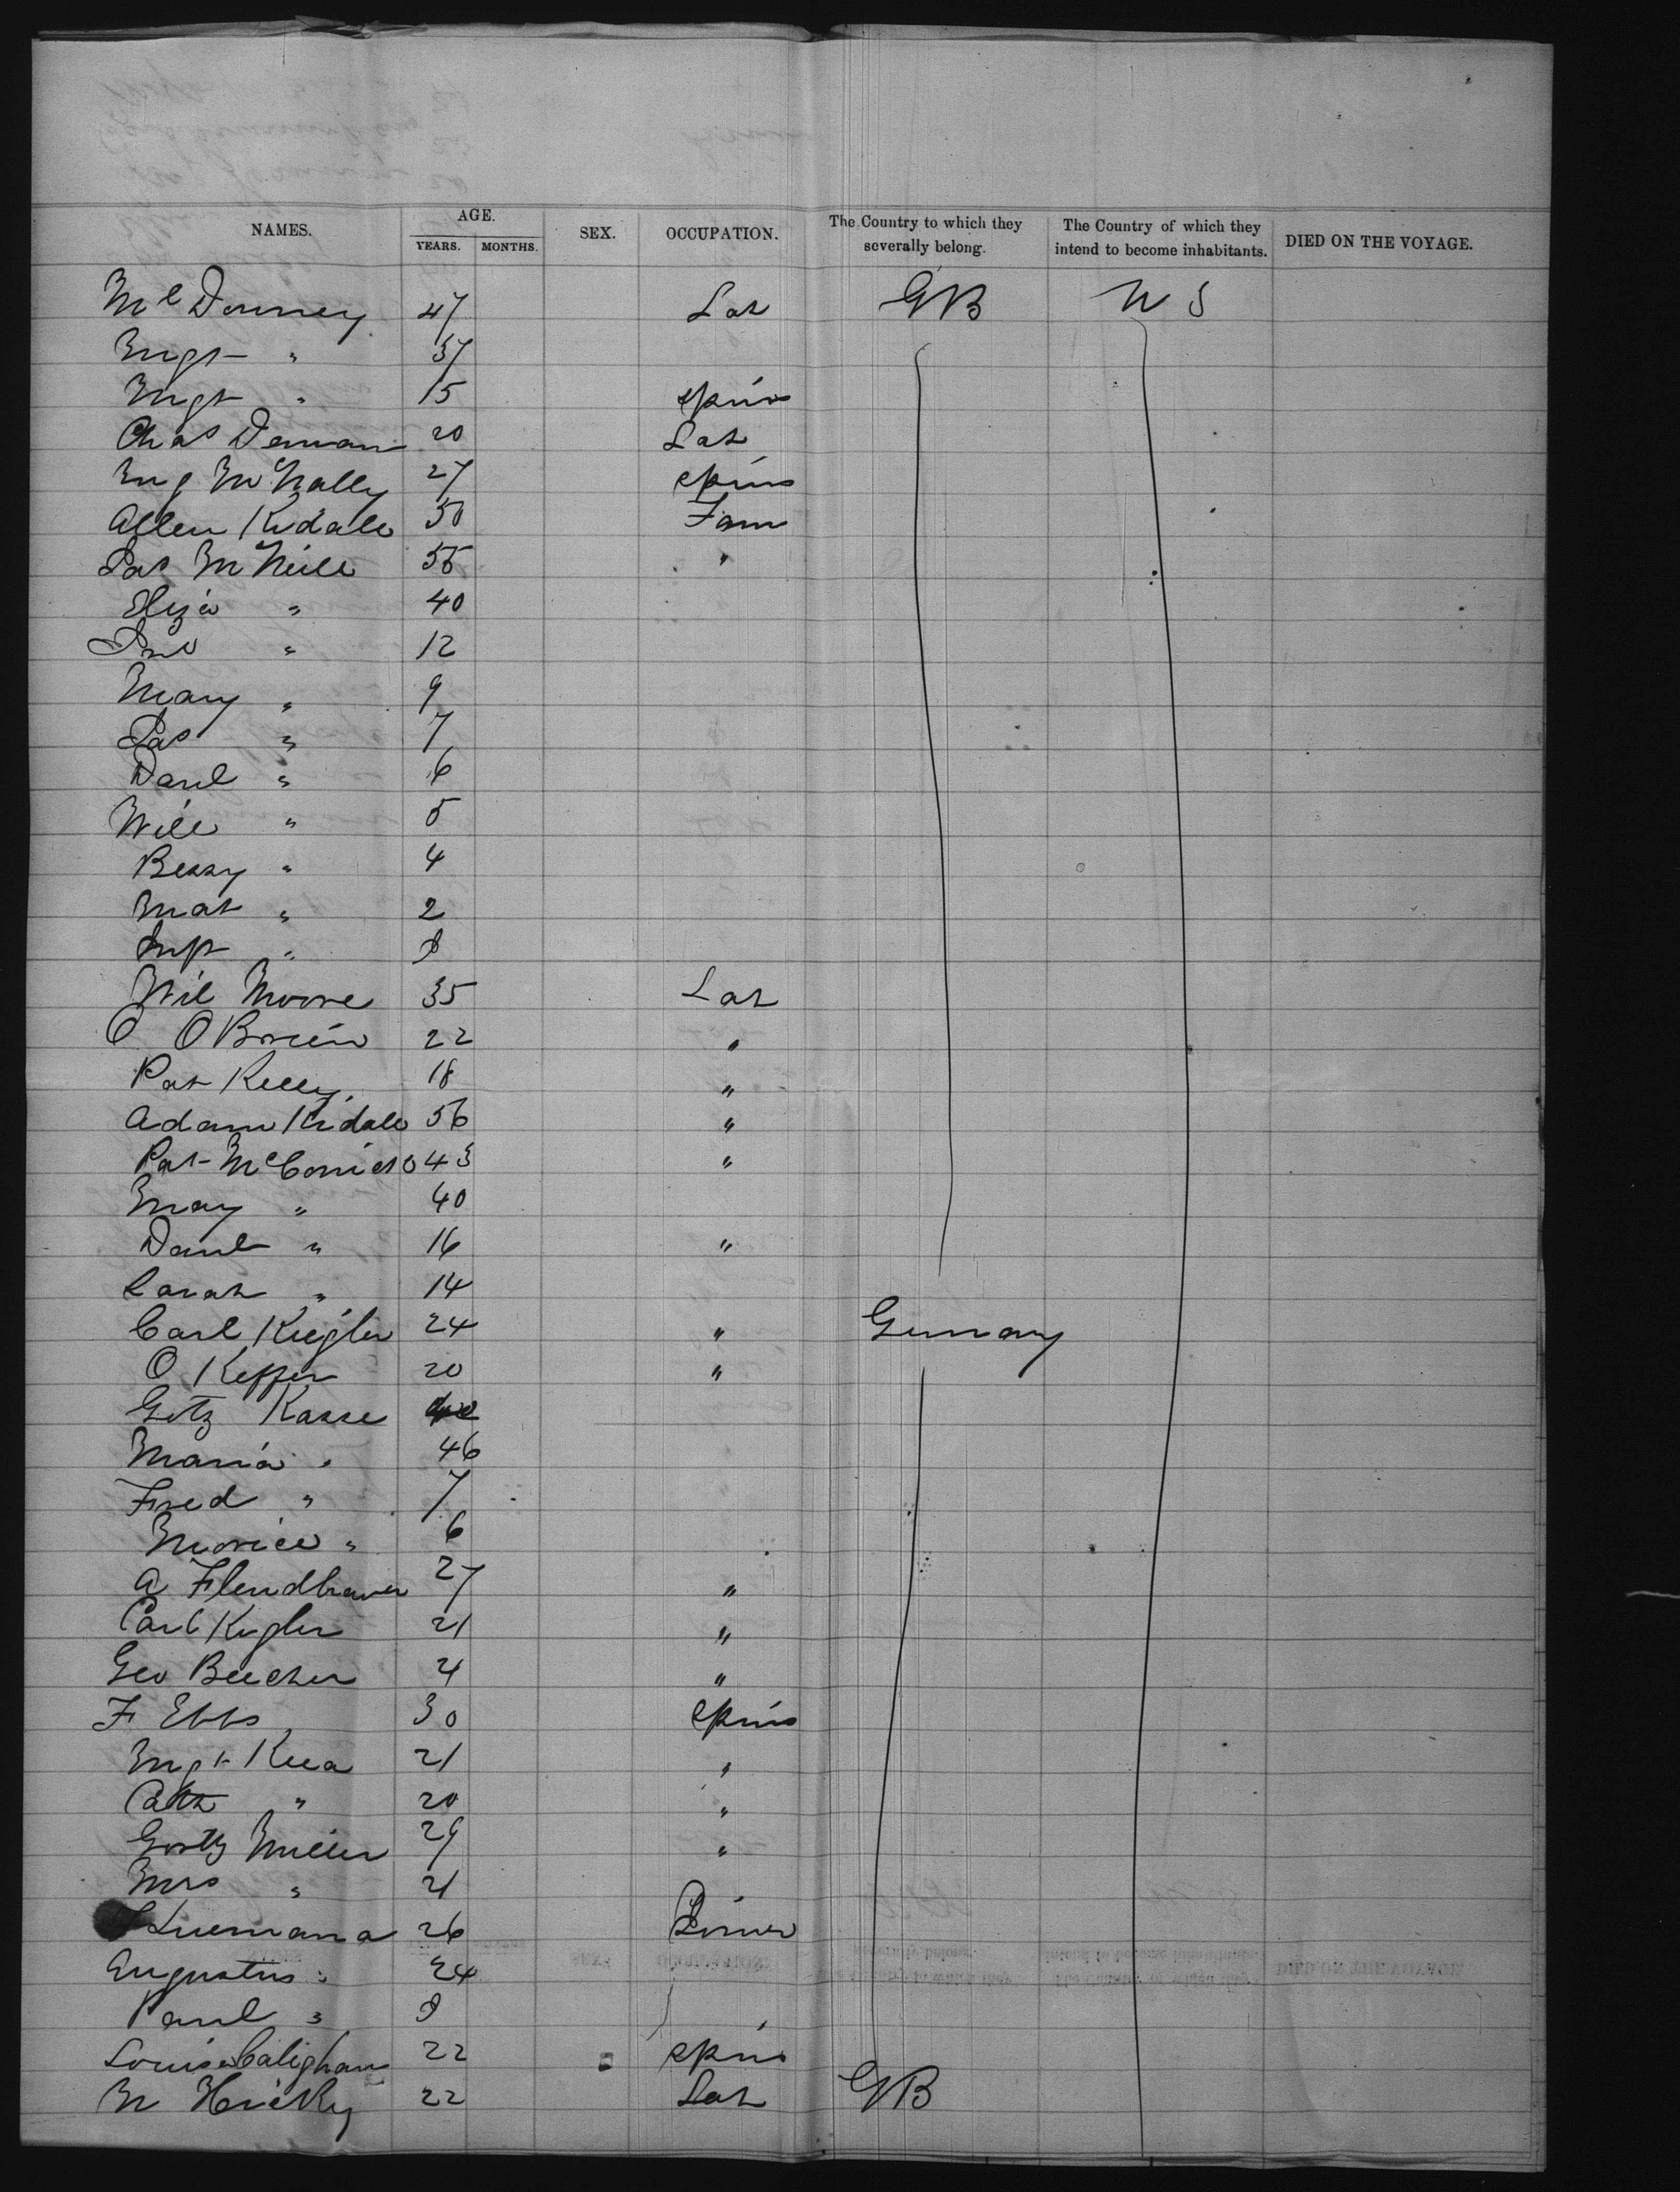 NAMES. AGE. SEX. OCCUPATION. The Country to which they severally belong. The Country of which they intend to become inhabitants. DIED ON THE VOYAGE.
YEARS. MONTHS.
Mc Downey 47 Lab GB U S
Mgt " 37
Mgt " 15 spins
Chas Deman 20 Lab
Mg McNally 27 spins
Allen Kidale 50 Farm
Pat McNeill 55 "
Eliza " 40
" 12
Mary " 9
Pat " 7
Danl " 6
Will " 5
Bessy " 4
Mat " 2
Inft "
Wil Moore 35 Lab
O OBrien 22 "
Pat Kelly 18 "
Adam Kidale 56 "
Pat 43 "
May " 40
Danl " 16 "
Sarah " 14
Carl Kugler 24 " Germany
O Keffer 20 "
Gotz Kasse
Maria " 46
Fred " 7
Morice " 6
A 27 "
Carl Kugler 21 "
Geo Beecher 21 "
F Ebbs 30 spins
Mgt Kua 21 "
Cath " 20 "
Gortz Miller 29 "
Mrs " 21
26
Augustus " 24
Paul "
Louisa Calighan 22 spins
M Hicky 22 Lab GB